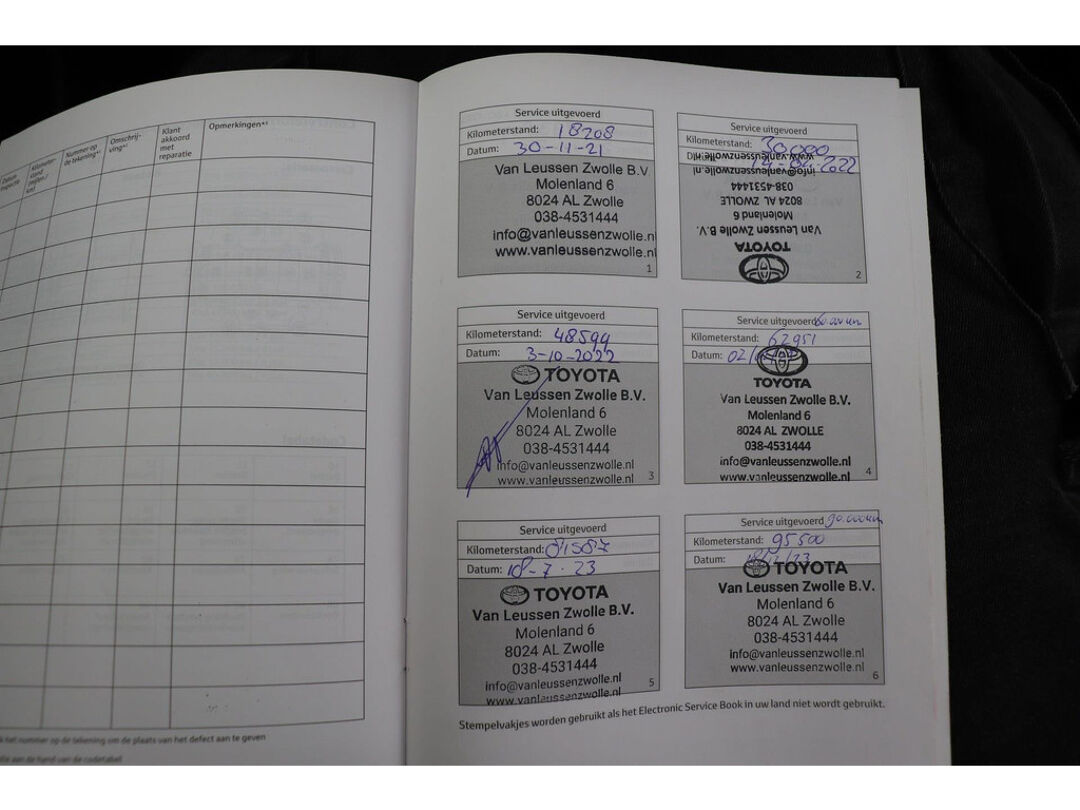 Datum inspectie
Kilometerstand (mijlen / km)
Nummer op de tekening*¹
Omschrijving*²
Klant akkoord met reparatie
Opmerkingen*³
het nummer op de tekening om de plaats van het defect aan te geven
aan de hand van de codetabel
Service uitgevoerd
Kilometerstand: 18208
Datum: 30-11-21
Van Leussen Zwolle B.V.
Molenland 6
8024 AL Zwolle
038-4531444
info@vanleussenzwolle.nl
www.vanleussenzwolle.nl
1
Service uitgevoerd
Kilometerstand: 30000
14-04-2022
www.vanleussenzwolle.nl
info@vanleussenzwolle.nl
038-4531444
8024 AL ZWOLLE
Molenland 6
Van Leussen Zwolle B.V.
TOYOTA
2
Service uitgevoerd
Kilometerstand: 48599
Datum: 3-10-2022
TOYOTA
Van Leussen Zwolle B.V.
Molenland 6
8024 AL Zwolle
038-4531444
info@vanleussenzwolle.nl
www.vanleussenzwolle.nl
3
Service uitgevoerd 60.000km
Kilometerstand: 62951
Datum: 02/
TOYOTA
Van Leussen Zwolle B.V.
Molenland 6
8024 AL ZWOLLE
038-4531444
info@vanleussenzwolle.nl
www.vanleussenzwolle.nl
4
Service uitgevoerd
Kilometerstand: 81587
Datum: 18-7-23
TOYOTA
Van Leussen Zwolle B.V.
Molenland 6
8024 AL Zwolle
038-4531444
info@vanleussenzwolle.nl
www.vanleussenzwolle.nl
5
Service uitgevoerd 90.000km
Kilometerstand: 95500
Datum: 18/12/23
TOYOTA
Van Leussen Zwolle B.V.
Molenland 6
8024 AL Zwolle
038-4531444
info@vanleussenzwolle.nl
www.vanleussenzwolle.nl
6
Stempelvakjes worden gebruikt als het Electronic Service Book in uw land niet wordt gebruikt.